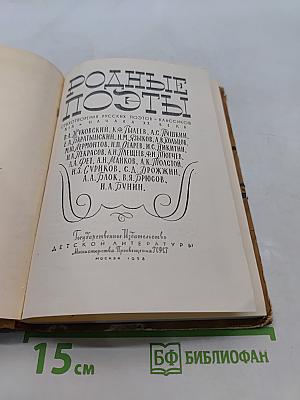 РОДНЫЕ
ПОЭТЫ
СТИХОТВОРЕНИЯ РУССКИХ ПОЭТОВ-КЛАССИКОВ
XIX - НАЧАЛА XX ВЕКА
В.А.ЖУКОВСКИЙ, К.Ф.РЫЛЕЕВ, А.С.ПУШКИН,
Е.А.БАРАТЫНСКИЙ, Н.М.ЯЗЫКОВ, А.В.КОЛЬЦОВ,
М.Ю.ЛЕРМОНТОВ, Н.П.ОГАРЕВ, И.С.НИКИТИН,
Н.А.НЕКРАСОВ, А.Н.ПЛЕЩЕЕВ, Ф.И.ТЮТЧЕВ,
А.А.ФЕТ, А.Н.МАЙКОВ, А.К.ТОЛСТОЙ,
И.З.СУРИКОВ, С.Д.ДРОЖЖИН,
А.А.БЛОК, В.Я.БРЮСОВ,
И.А.БУНИН.
Государственное Издательство
ДЕТСКОЙ ЛИТЕРАТУРЫ
Министерства Просвещения РСФСР
МОСКВА 1958
15 см
БФ БИБЛИОФАН